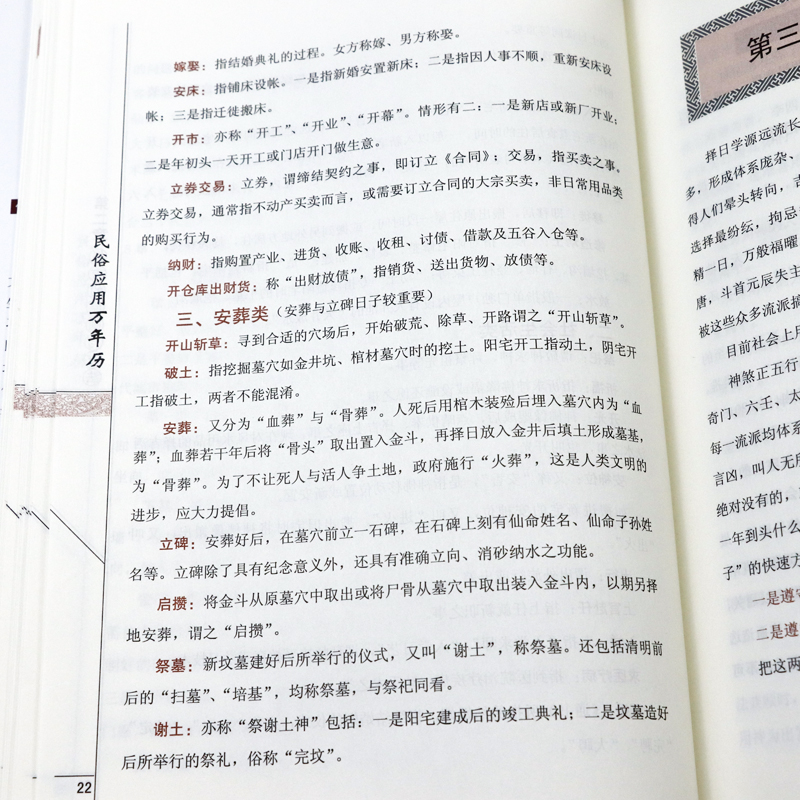 嫁娶：指结婚典礼的过程。女方称嫁、男方称娶。
安床：指铺床设帐。一是指新婚安置新床；二是指因人事不顺，重新安床设
帐；三是指迁徙搬床。
开市：亦称“开工”、“开业”、“开幕”。情形有二：一是新店或新厂开业；
二是年初头一天开工或门店开门做生意。
立券交易：立券，谓缔结契约之事，即订立《合同》；交易，指买卖之事。
立券交易，通常指不动产买卖而言，或需要订立合同的大宗买卖，非日常用品类
的购买行为。
纳财：指购置产业、进货、收账、收租、讨债、借款及五谷入仓等。
开仓库出财货：称“出财放债”，指销货、送出货物、放债等。
三、安葬类（安葬与立碑日子较重要）
开山斩草：寻到合适的穴场后，开始破荒、除草、开路谓之“开山斩草”。
破土：指挖掘墓穴如金井坑、棺材墓穴时的挖土。阳宅开工指动土，阴宅开
工指破土，两者不能混淆。
安葬：又分为“血葬”与“骨葬”。人死后用棺木装殓后埋入墓穴内为“血
葬”；血葬若干年后将“骨头”取出置入金斗，再择日放入金井后填土形成墓基，
为“骨葬”。为了不让死人与活人争土地，政府施行“火葬”，这是人类文明的
进步，应大力提倡。
立碑：安葬好后，在墓穴前立一石碑，在石碑上刻有仙命姓名、仙命子孙姓
名等。立碑除了具有纪念意义外，还具有准确立向、消砂纳水之功能。
启攒：将金斗从原墓穴中取出或将尸骨从墓穴中取出装入金斗内，以期另择
地安葬，谓之“启攒”。
祭墓：新坟墓建好后所举行的仪式，又叫“谢土”，称祭墓。还包括清明前
后的“扫墓”、“培基”，均称祭墓，与祭祀同看。
谢土：亦称“祭谢土神”包括：一是阳宅建成后的竣工典礼；二是坟墓造好
后所举行的祭礼，俗称“完坟”。
民俗应用万年历
22
第三
择日学源远流长
多，形成体系庞杂、
得人们晕头转向，吉
选择最纷纭，拘忌
精一日，万般福曜
唐，斗首元辰失主
被这些众多流派搞
目前社会上月
神煞正五行
奇门、六壬、太
每一流派均体系
言凶，叫人无所
绝对没有的，
一年到头什么
子”的快速方
一是遵守
二是遵
把这两